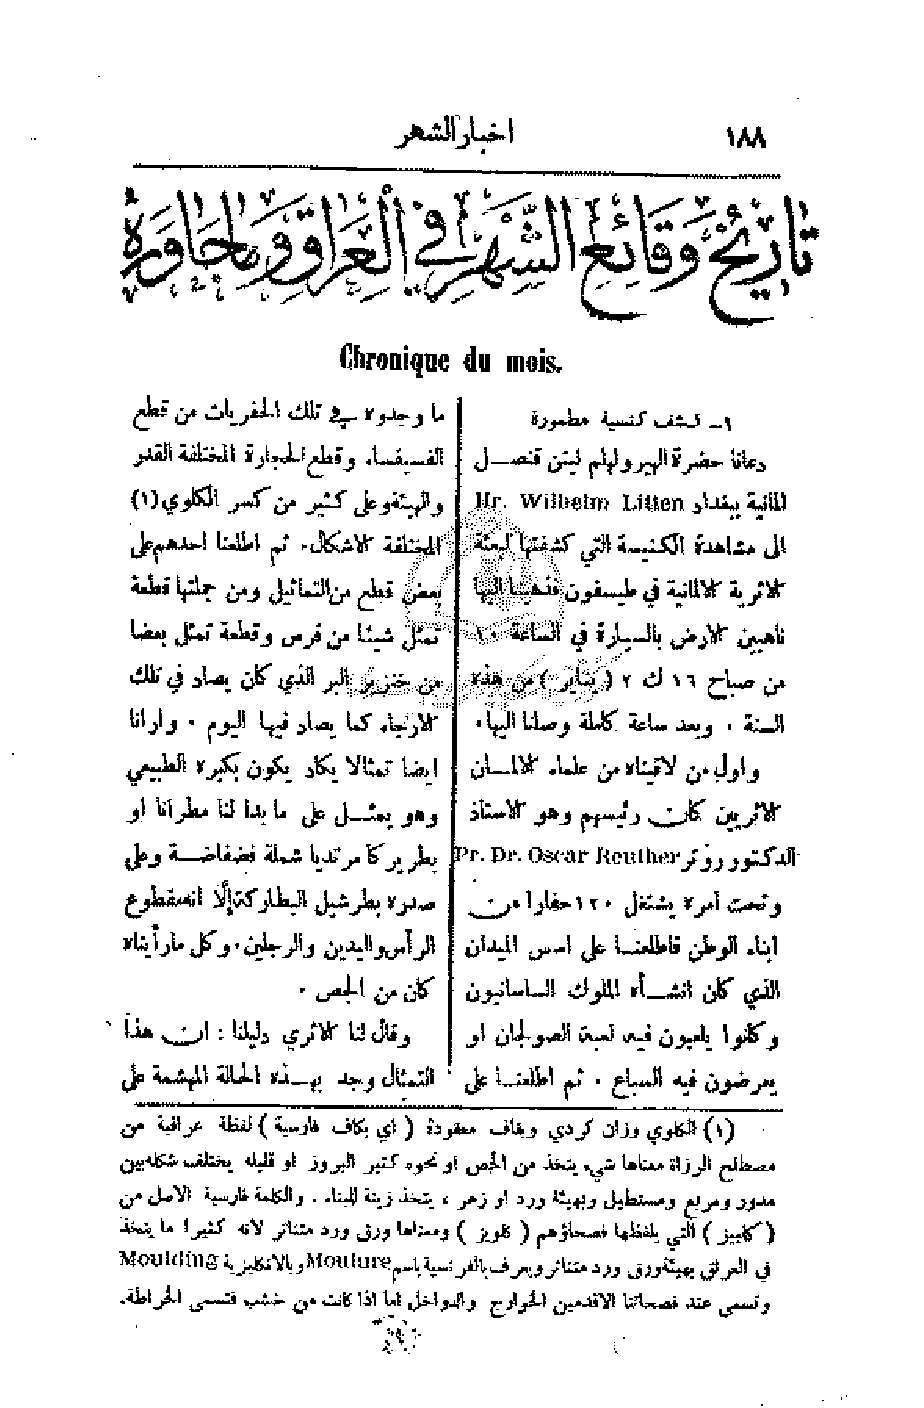 ١٨٨
اخبار الشهر
تاريخ وقائع الشهر في العراق وما جاوره
Chronique du mois.
١ـ كشف كنسية مطمورة
دعانا حضرة الهير ولهلم ليتن قنصل
المانية ببغداد Hr. Wilhelm Litten
الى مشاهدة الكنيسة التي كشفتها البعثة
الاثرية الالمانية في طيسفون فذهبنا اليها
ناهبين الارض بالسيارة في الساعة ١٠
من صباح ١٦ ك ٢ ( يناير ) من هذه
السنة . وبعد ساعة كاملة وصلنا اليها.
واول من لاقيناه من علماء الالمان
الاثريين كان رئيسهم وهو الاستاذ
الدكتور روتر Pr. Dr. Oscar Reuther
وتحت امره يشتغل ١٢٠ حفارا من
ابناء الوطن فاطلعنا على اسس الميدان
الذي كان انشأه الملوك الساسانيون
وكانوا يلعبون فيه لعبة الصولجان او
يعرضون فيه السباع . ثم اطلعنا على
ما وجدوه في تلك الحفريات من قطع
الفسيفساء وقطع الحجارة المختلفة القدر
والهيئة وعلى كثير من كسر الكلوي (١)
المختلفة الاشكال. ثم اطلعنا احدهم على
بعض قطع من التماثيل ومن جملتها قطعة
تمثل شيئا من فرس وقطعة تمثل بعضا
من خنزير البر الذي كان يصاد في تلك
الارجاء كما يصاد فيها اليوم . وارانا
ايضا تمثالا يكاد يكون بكبره الطبيعي
وهو يمثل على ما بدا لنا مطرانا او
بطريركا مرتديا شملة فضفاضة وعلى
صدره بطرشيل البطاركة إلا انه مقطوع
الرأس واليدين والرجلين. وكل ما رأيناه
كان من الجص .
وقال لنا الاثري دليلنا : ان هذا
التمثال وجد بهذه الحالة المهشمة على
(١) الكلوي وزان كردي وبقاف معقودة ( اي بكاف فارسية ) لفظة عراقية من
مصطلح الرزاة معناها شيء يتخذ من الجص او نحوه كثير البروز او قليله يختلف شكله بين
مدور ومربع ومستطيل وبهيئة ورد او زهر ، يتخذ زينة للبناء . والكلمة فارسية الاصل من
( كلبيز ) التي يلفظها فصحاؤهم ( كلويز ) ومعناها ورق ورد متناثر لانه كثيرا ما يتخذ
في العراق بهيئة ورق ورد متناثر ويعرف بالفرنسية باسم Moulure وبالانكليزية Moulding
وتسمى عند فصحائنا الاقدمين الخوارج والدواخل اما اذا كانت من خشب فتسمى الخراطة.